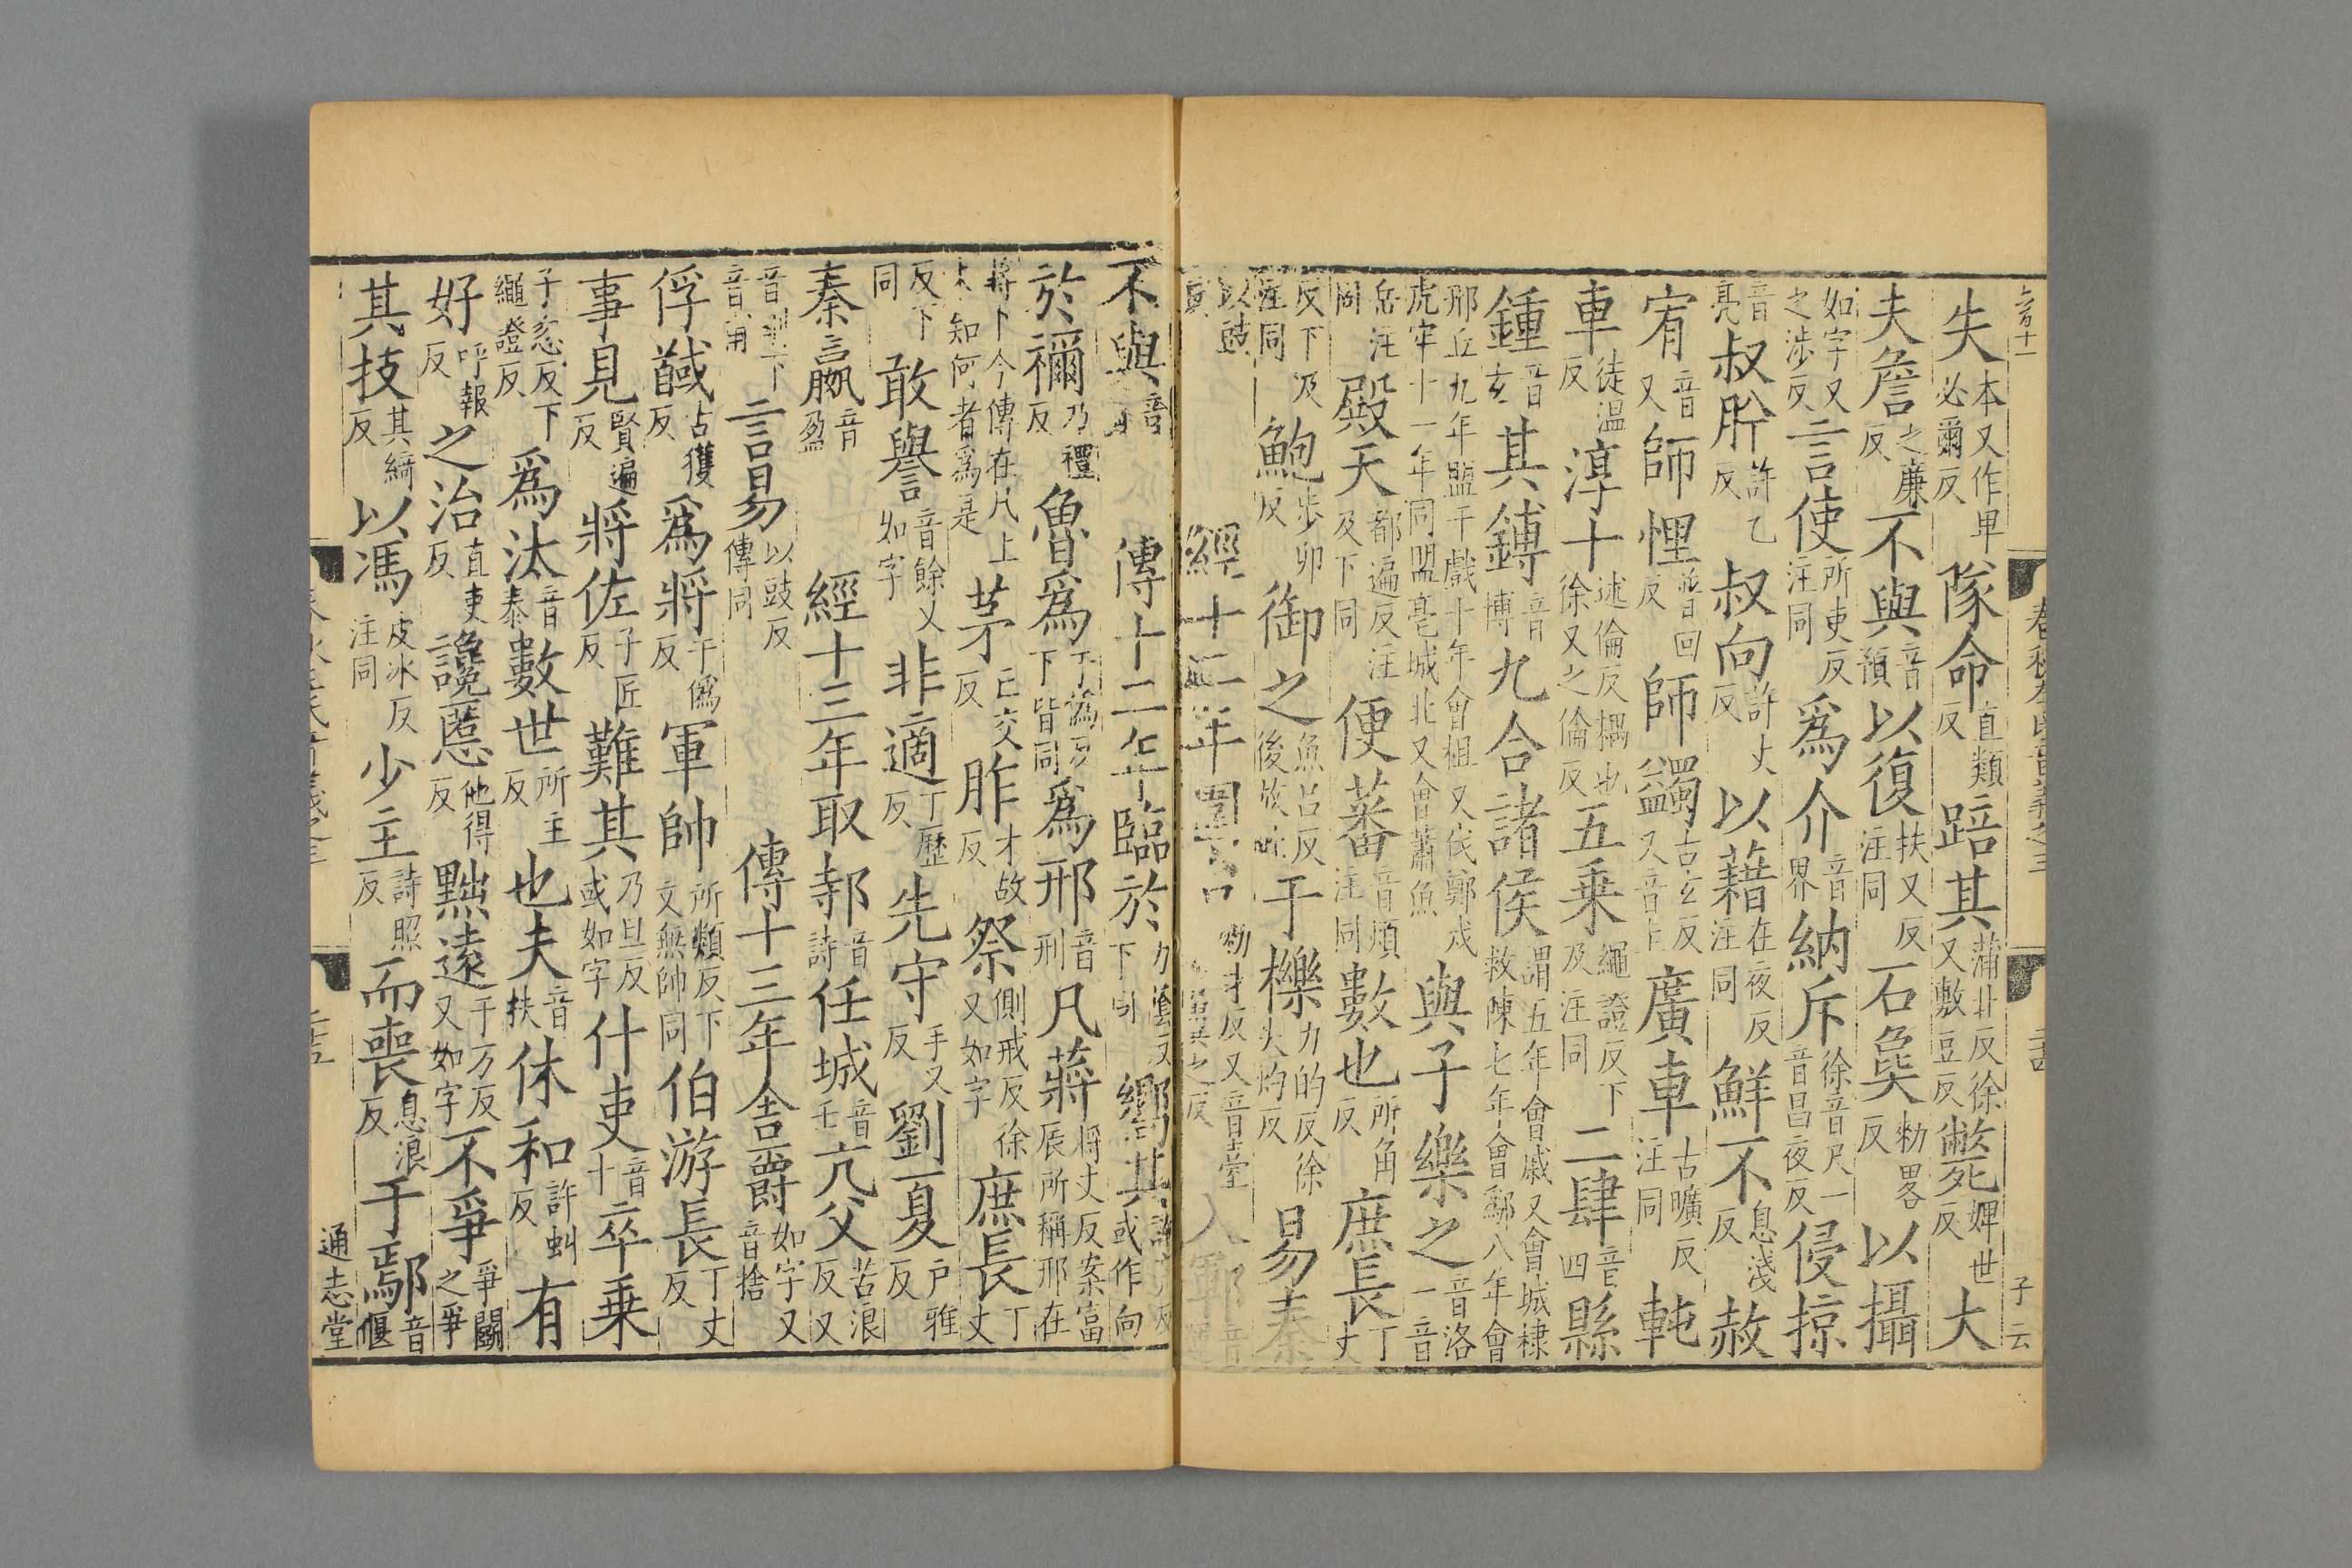 失本又作卑必爾反隊命直類反踣其蒲北反徐又敷豆反斃婢世反大
夫詹之廉反不與音預以復扶又反注同石㚟勑畧反以攝
如字又之涉反言使所吏反注同爲介音界納斥徐音尺一音昌夜反侵掠
音亮叔肸許乙反叔向許丈反以藉在夜反注同鮮不息淺反赦
宥音又師悝苦回反師蠲古玄反又音圭廣車古曠反注同軘
車徒温反淳十述倫反耦也徐又之倫反五乘繩證反下及注同二肆音四縣
鍾音玄其鎛音博九合諸侯謂五年會戚又會城棣救陳七年會鄬八年會
邢丘九年盟于戲十年會柤又伐鄭戍虎牢十一年同盟亳城北又會蕭魚與子樂之音洛一音
岳注同殿天都遍反注及下同便蕃音煩注同數也所角反庶長丁丈
反下及注同鮑步卯反御之魚呂反後放此于櫟力的反徐失灼反易秦
以豉反經十二年圍台勑才反又音臺入鄆音運
不與音預傳十二年臨於力蔭反下同嚮其許亮反或作向
於禰乃禮反魯爲于爲反下皆同爲邢音刑凡蔣將丈反案富辰所稱邢在
蔣下今傳在凡上未知何者爲是茅亡交反胙才故反祭側戒反徐又如字庶長丁丈
反下同敢譽音餘又如字非適丁歷反先守手又反劉夏戶雅反
秦嬴音盈經十三年取邿音詩任城音壬亢父苦浪反又
音剛下音甫言易以豉反傳同傳十三年舍爵如字又音捨
俘馘古獲反爲將于僞反軍帥所類反下文無帥同伯游長丁丈反
事見賢遍反將佐子匠反難其乃旦反或如字什吏音十卒乘
子忽反下繩證反爲汰音泰數世所主反也夫音扶休和許虯反有
好呼報反之治直吏反讒慝他得反黜遠于万反又如字不爭爭鬭之爭
其技其綺反以馮皮冰反注同少主詩照反而喪息浪反于鄢音偃
通志堂